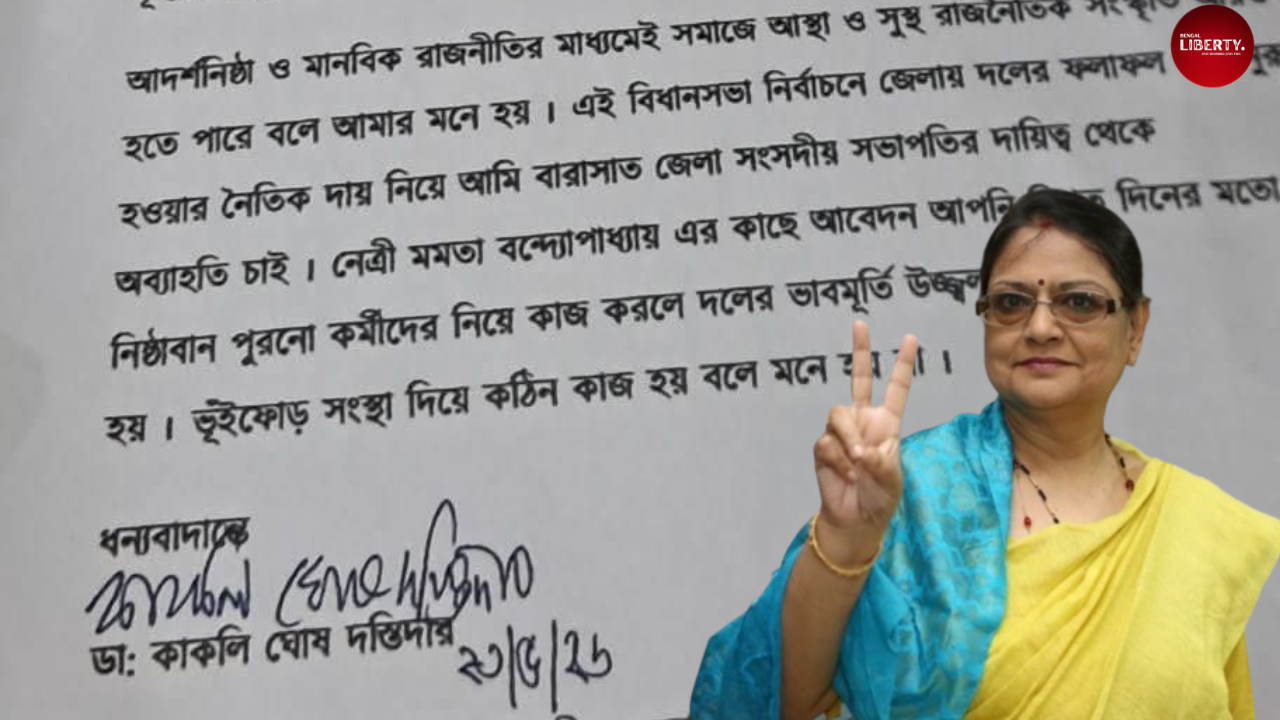 আদর্শনিষ্ঠা ও মানবিক রাজনীতির মাধ্যমেই সমাজে আস্থা ও সুস্থ রাজনৈতিক সংস্কৃতি
হতে পারে বলে আমার মনে হয় । এই বিধানসভা নির্বাচনে জেলায় দলের ফলাফল
হওয়ার নৈতিক দায় নিয়ে আমি বারাসাত জেলা সংসদীয় সভাপতির দায়িত্ব থেকে
অব্যাহতি চাই । নেত্রী মমতা বন্দ্যোপাধ্যায় এর কাছে আবেদন আপনি দিনের মতো
নিষ্ঠাবান পুরনো কর্মীদের নিয়ে কাজ করলে দলের ভাবমূর্তি উজ্জ্বল
হয় । ভূঁইফোড় সংস্থা দিয়ে কঠিন কাজ হয় বলে মনে হয় না ।
ধন্যবাদান্তে
কাকলি ঘোষ দস্তিদার
ডা: কাকলি ঘোষ দস্তিদার
২৩/৫/২৬
BENGAL
LIBERTY.